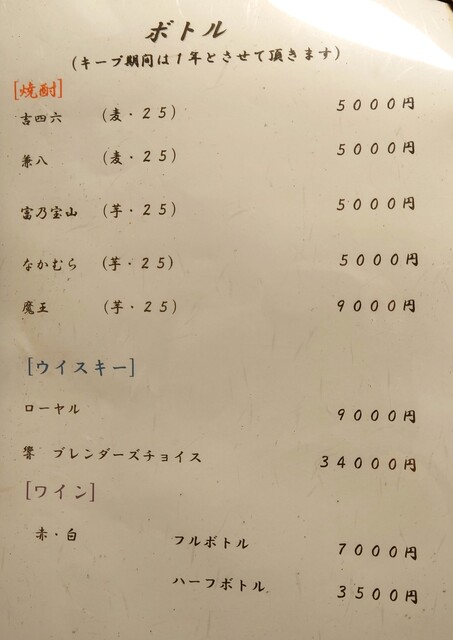 ボトル
(キープ期間は1年とさせて頂きます)
[焼酎]
吉四六 (麦・25) 5000円
兼八 (麦・25) 5000円
富乃宝山 (芋・25) 5000円
なかむら (芋・25) 5000円
魔王 (芋・25) 9000円
[ウイスキー]
ローヤル 9000円
響 ブレンダーズチョイス 34000円
[ワイン]
赤・白 フルボトル 7000円
ハーフボトル 3500円